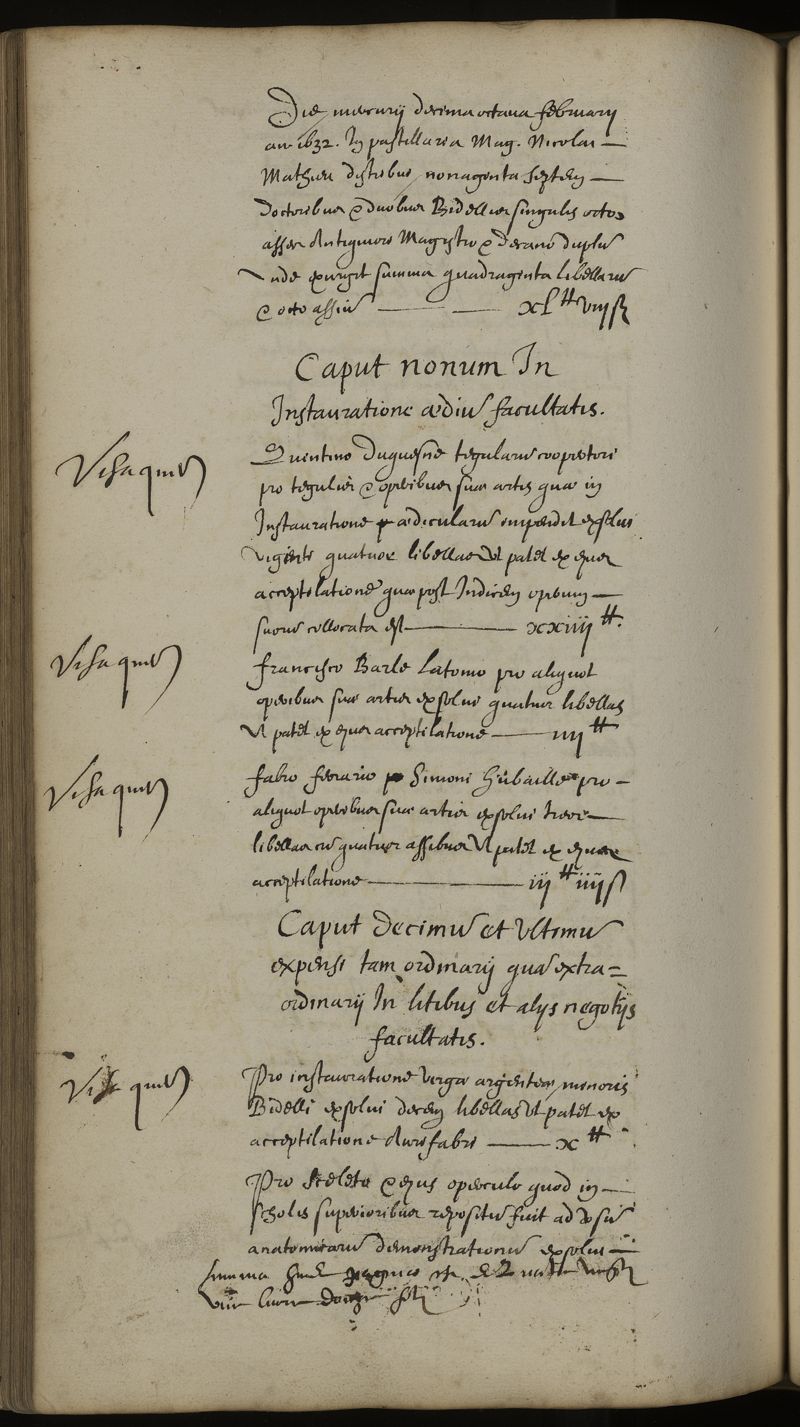 Die mercurij decima octava februarij
an. 1632. In pastillaria Mag. Nicolai —
Mathieu distribui nonaginta septem —
doctoribus & duobus Bidellis singulis octo
asses Antiquiori Magistro & decano duplū
unde exurgit summa quadraginta libellarū
& octo assiū — — xl ₶ viij ſ
Caput nonum In
Instauratione ædiū facultatis.
Visa quitt
Quintino Duquesne tegularū coopertori
pro tegulis & operibus suæ artis quæ in
Instauratione ædicularū impendit exsolui
viginti quatuor libellas Ut patet ex ejus
acceptilatione quæ post Indicem operum —
suorū collocata est — xxiiij ₶.
Visa quitt
francisco Barle Latomo pro aliquot
operibus suæ artis exsolui quatuor libellas
Ut patet ex ejus acceptilatione — iiij ₶
Visa quitt
fabro ferrario Simoni Hubaille pro —
aliquot operibus suæ artis exsolui tres —
libellas cū quatuor assibus Ut patet ex ejus
acceptilatione — iij ₶ iiij ſ
Caput decimū et Ultimū
expensi tam ordinarij quā extra=
ordinarij In litibus et alijs negotijs
facultatis.
Visa quitt
Pro instauratione virgæ argenteæ minoris
Bidelli exsolui decem libellas Ut patet ex
acceptilatione Aurifabri — x ₶.
Pro sceleto & ejus operculo quod in —
scholis superioribus repositū fuit ad usū
anatomicarū demonstrationū exsolui —
summa